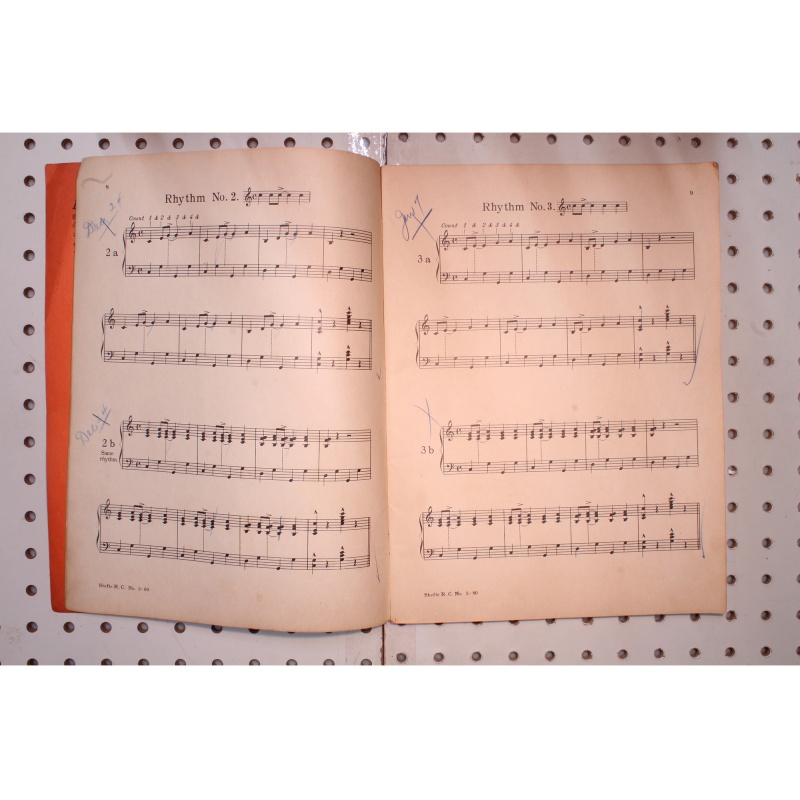 8
Rhythm No. 2.
Count 1 & 2 & 3 & 4 &
2 a
2 b
Same
rhythm
Shefte R. C. No. 5-60
9
Rhythm No. 3.
Count 1 & 2 & 3 & 4 &
3 a
3 b
Shefte R. C. No. 5-60